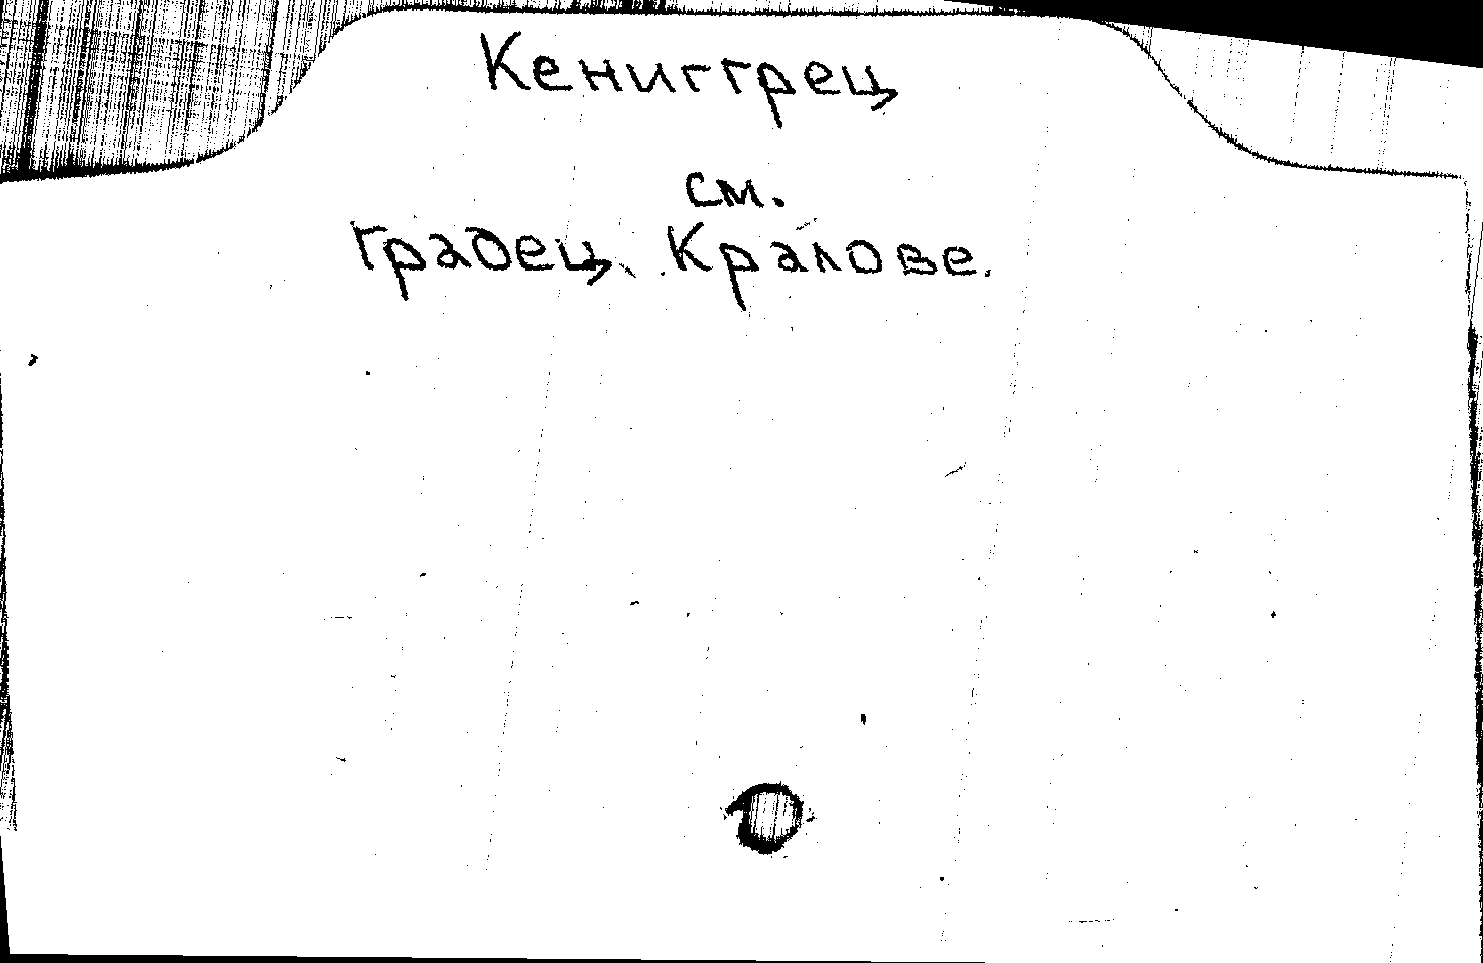 Кениггрец
см.
Градец Кралове.